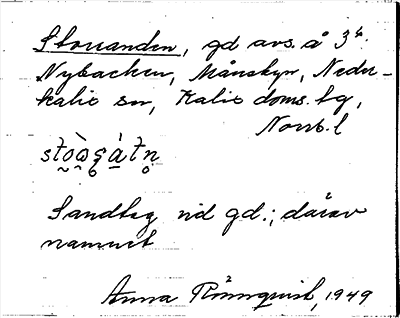 Storsanden, gd avs. å 3⁴.
Nybacken, Månsbyn, Neder-
kalix sn, Kalix doms. tg,
Norrb. l
Sandtag vid gd.; därav
namnet
Anna Rönnqvist, 1949